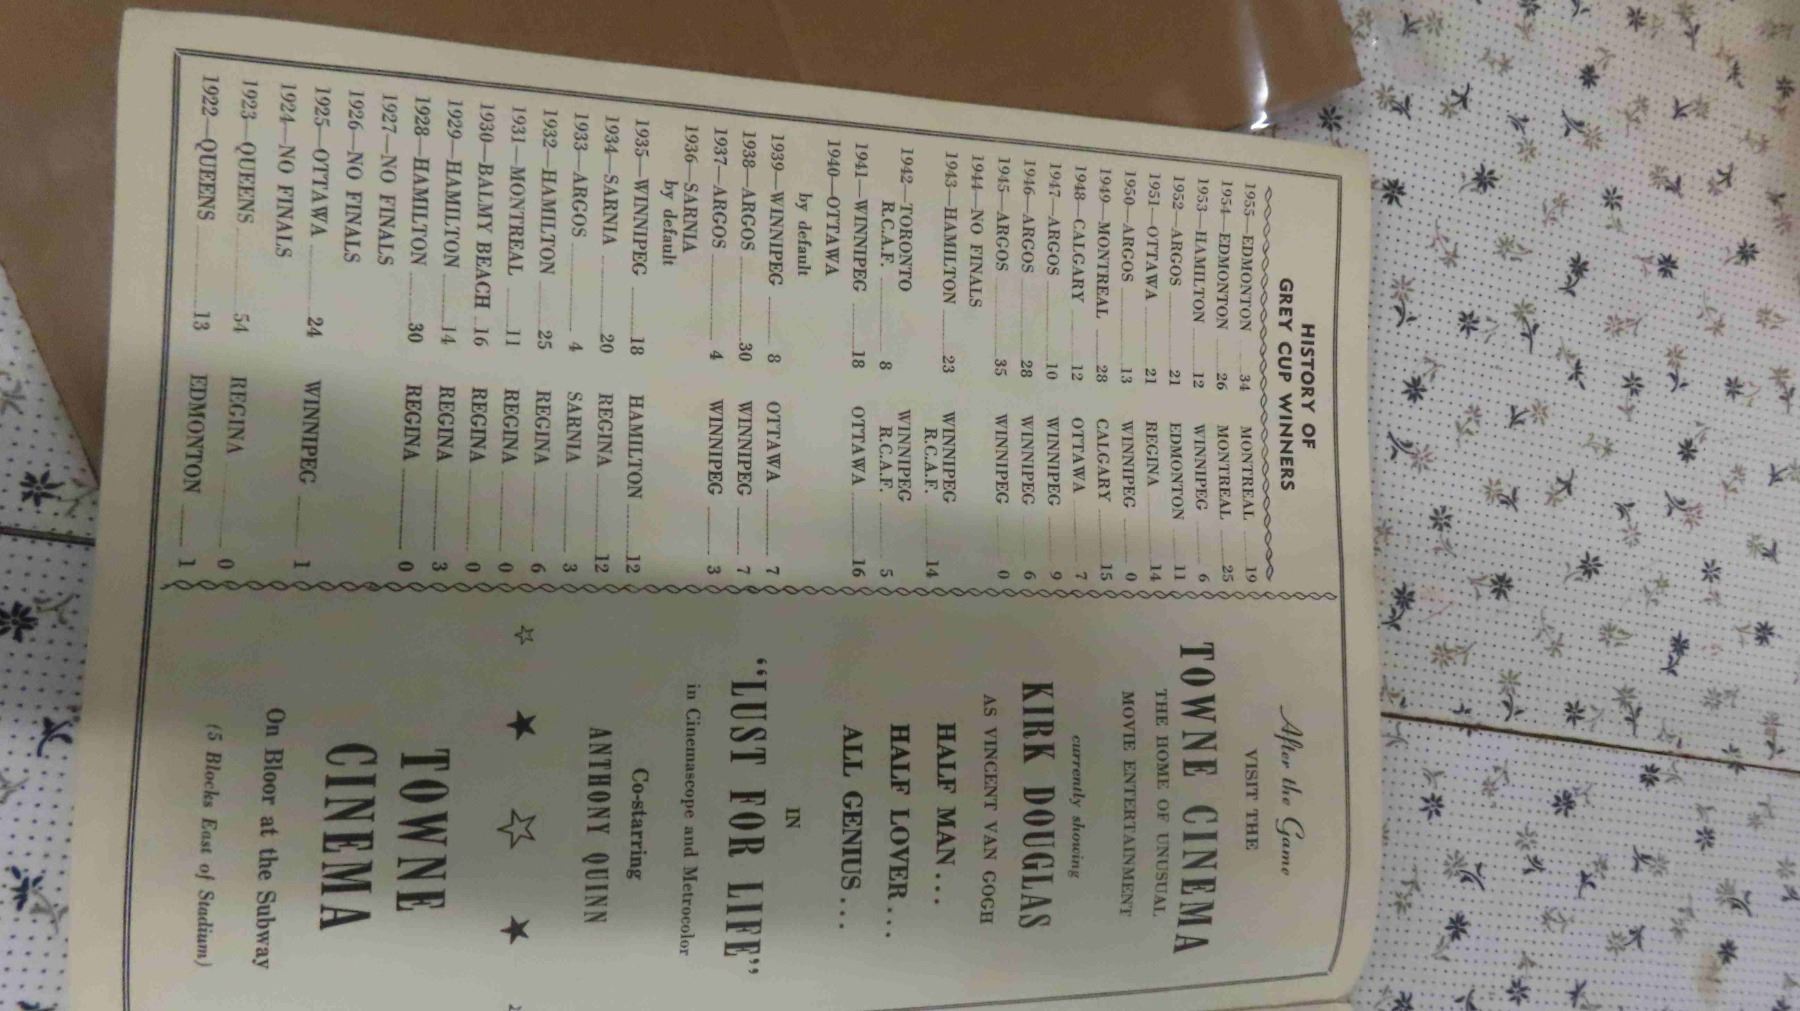 HISTORY OF
GREY CUP WINNERS
1955—EDMONTON ......34 MONTREAL ......19
1954—EDMONTON ......26 MONTREAL ......25
1953—HAMILTON ......12 WINNIPEG ...... 6
1952—ARGOS ......21 EDMONTON ......11
1951—OTTAWA ......21 REGINA ......14
1950—ARGOS ......13 WINNIPEG ...... 0
1949—MONTREAL ......28 CALGARY ......15
1948—CALGARY ......12 OTTAWA ...... 7
1947—ARGOS ......10 WINNIPEG ...... 9
1946—ARGOS ......28 WINNIPEG ...... 6
1945—ARGOS ......35 WINNIPEG ...... 0
1944—NO FINALS
1943—HAMILTON ......23 WINNIPEG
R.C.A.F. ......14
1942—TORONTO WINNIPEG
R.C.A.F. ...... 8 R.C.A.F. ...... 5
1941—WINNIPEG ......18 OTTAWA ......16
1940—OTTAWA
by default
1939—WINNIPEG ...... 8 OTTAWA ...... 7
1938—ARGOS ......30 WINNIPEG ...... 7
1937—ARGOS ...... 4 WINNIPEG ...... 3
1936—SARNIA
by default
1935—WINNIPEG ......18 HAMILTON ......12
1934—SARNIA ......20 REGINA ......12
1933—ARGOS ...... 4 SARNIA ...... 3
1932—HAMILTON ......25 REGINA ...... 6
1931—MONTREAL ......11 REGINA ...... 0
1930—BALMY BEACH ..16 REGINA ...... 0
1929—HAMILTON ......14 REGINA ...... 3
1928—HAMILTON ......30 REGINA ...... 0
1927—NO FINALS
1926—NO FINALS
1925—OTTAWA ......24 WINNIPEG ...... 1
1924—NO FINALS
1923—QUEENS ......54 REGINA ...... 0
1922—QUEENS ......13 EDMONTON ...... 1
After the Game
VISIT THE
TOWNE CINEMA
THE HOME OF UNUSUAL
MOVIE ENTERTAINMENT
currently showing
KIRK DOUGLAS
AS VINCENT VAN GOGH
HALF MAN...
HALF LOVER...
ALL GENIUS...
IN
"LUST FOR LIFE"
in Cinemascope and Metrocolor
Co-starring
ANTHONY QUINN
TOWNE
CINEMA
On Bloor at the Subway
(5 Blocks East of Stadium)